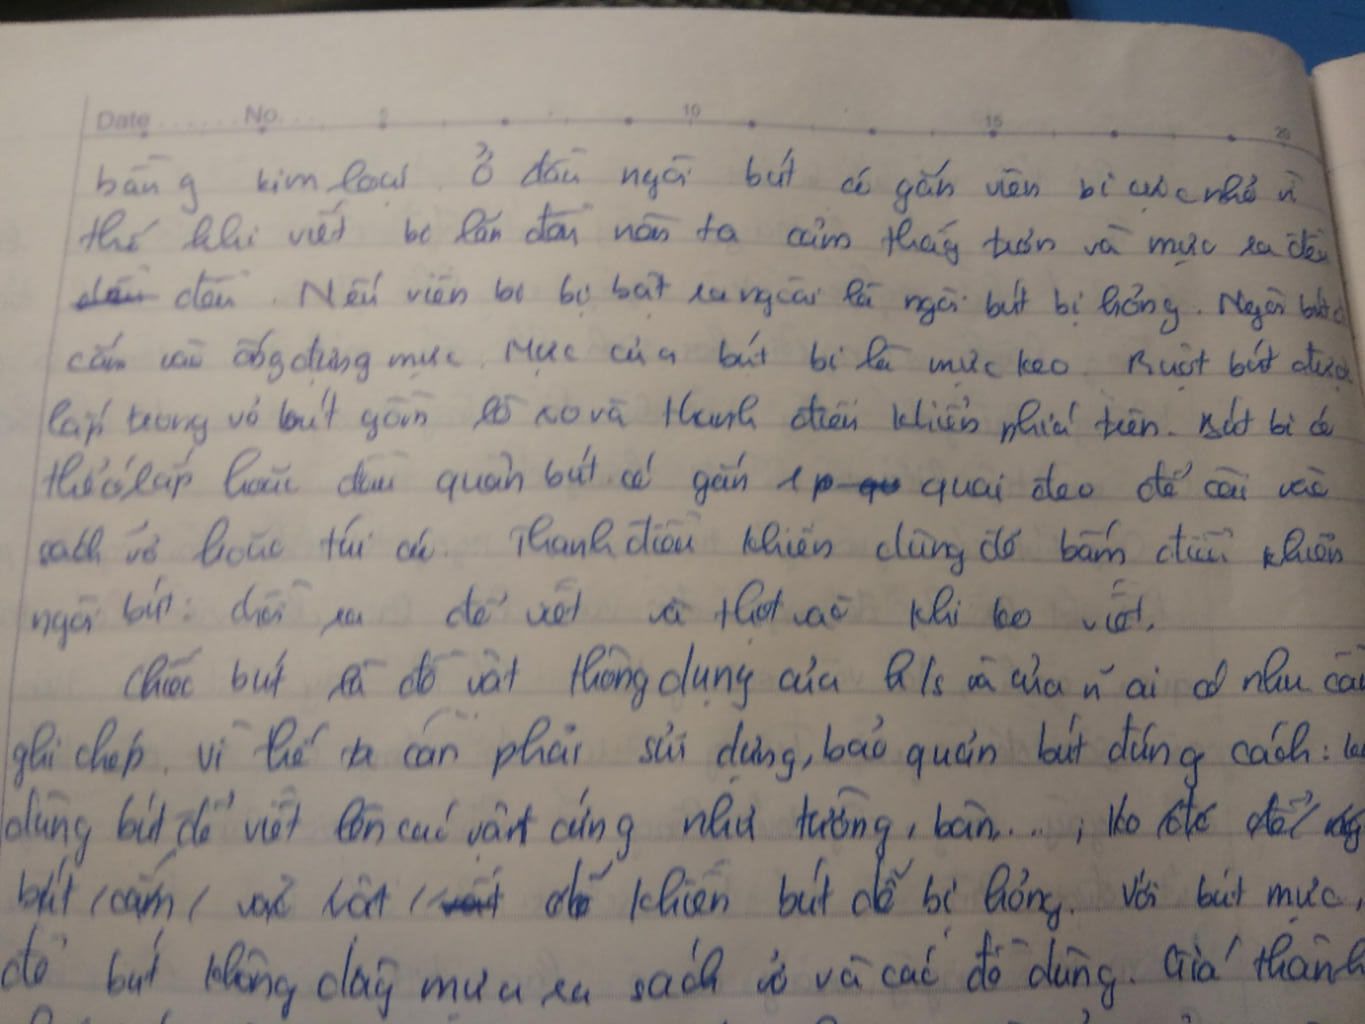 Date No. 5 10 15 20
bằng kim loại. Ở đầu ngòi bút có gắn viên bi cực nhỏ vì
thế khi viết bi lăn đều nên ta cảm thấy trơn và mực ra đều
đều đều. Nếu viên bi bị bật ra ngoài là ngòi bút bị hỏng. Ngòi bút
cắm vào ống đựng mực. Mực của bút bi là mực keo. Ruột bút được
lắp trong vỏ bút gồm lò xo và thanh điều khiển phía trên. Bút bi có
thể có lắp hoặc đầu quản bút có gắn 1 quai đeo để cài vào
sách vở hoặc túi áo. Thanh điều khiển dùng để bấm điều khiển
ngòi bút: chồi ra để viết và thụt vào khi ko viết.
Chiếc bút là đồ vật thông dụng của h/s và của n~ ai có nhu cầu
ghi chép. Vì thế ta cần phải sử dụng, bảo quản bút đúng cách: ko
dùng bút để viết lên các vật cứng như tường, bàn...; ko để
bút cắm vào vật khiến bút dễ bị hỏng. Với bút mực,
để bút không dây mực ra sách vở và các đồ dùng. Giá thành